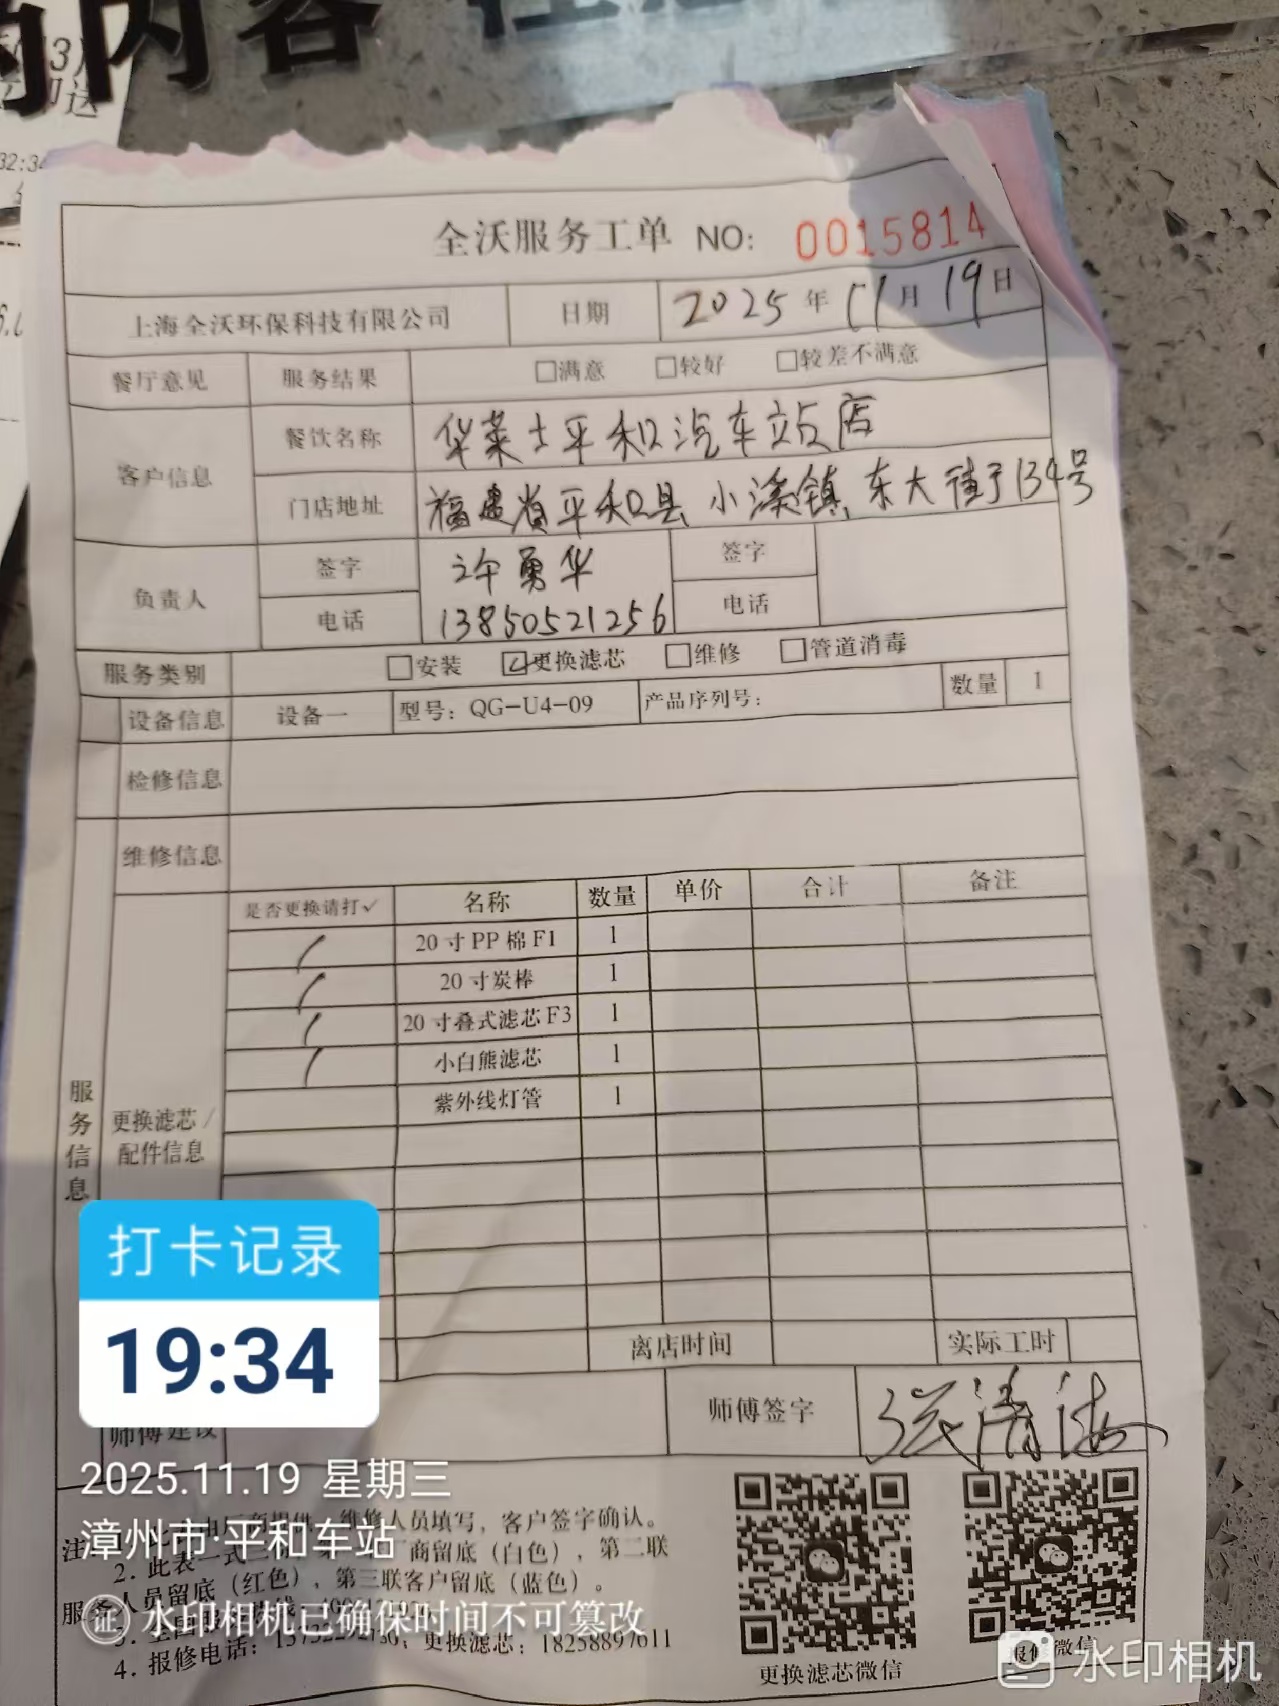 内容
全沃服务工单 NO: 0015814
上海全沃环保科技有限公司 日期 2025年11月19日
餐厅意见 服务结果 □满意 □较好 □较差不满意
客户信息 餐饮名称 华莱士平和汽车站店
门店地址 福建省平和县小溪镇东大街于134号
负责人 签字 许勇华 签字
电话 13850521256 电话
服务类别 □安装 ☑更换滤芯 □维修 □管道消毒
设备信息 设备一 型号：QG-U4-09 产品序列号： 数量 1
检修信息
维修信息
是否更换请打✓ 名称 数量 单价 合计 备注
20寸PP棉F1 1
20寸炭棒 1
20寸叠式滤芯F3 1
小白熊滤芯 1
紫外线灯管 1
服务信息
更换滤芯/
配件信息
离店时间 实际工时
师傅建议 师傅签字 张清海
打卡记录
19:34
2025.11.19 星期三
漳州市·平和车站
维修人员填写，客户签字确认。
2. 此表一式三 商留底（白色），第二联
服务人员留底（红色），第三联客户留底（蓝色）。
证 水印相机已确保时间不可篡改
4. 报修电话： 更换滤芯：18258897611
更换滤芯微信
报修微信
水印相机